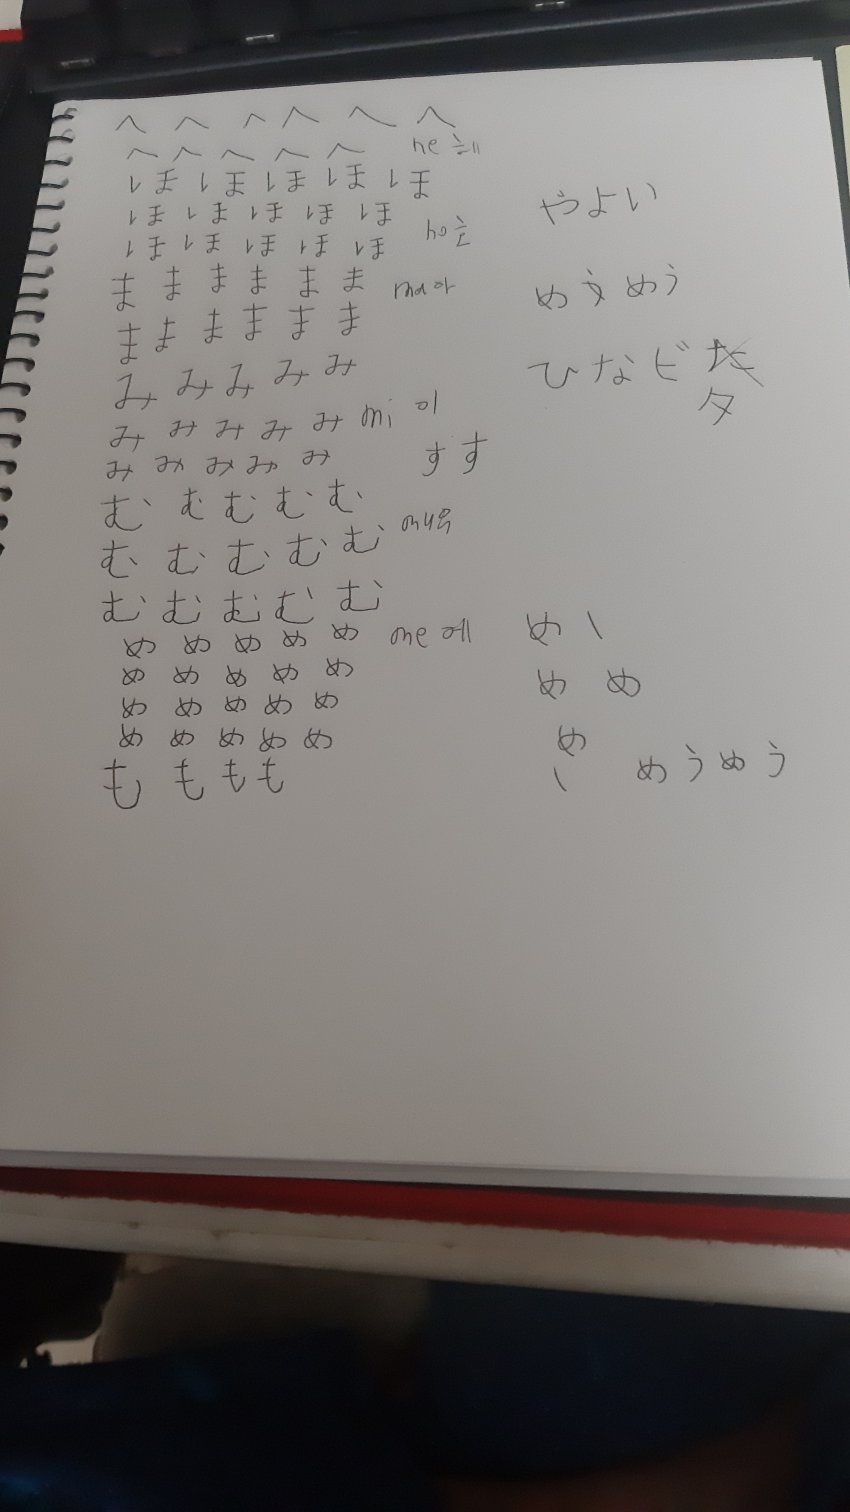 へ へ へ へ へ へ
へ へ へ へ へ he 헤
ほ ほ ほ ほ ほ
ほ ほ ほ ほ ほ やよい
ほ ほ ほ ほ ほ ho 호
ま ま ま ま ま ま ma 마
めうめう
ま ま ま ま ま ま
み み み み み ひなビ
タ
み み み み み mi 미
み み み み み すす
む む む む む
む む む む む mu
む む む む む
め め め め め me 메 め
め め め め め め め
め め め め め
め め め め め め
も も も も めうめう